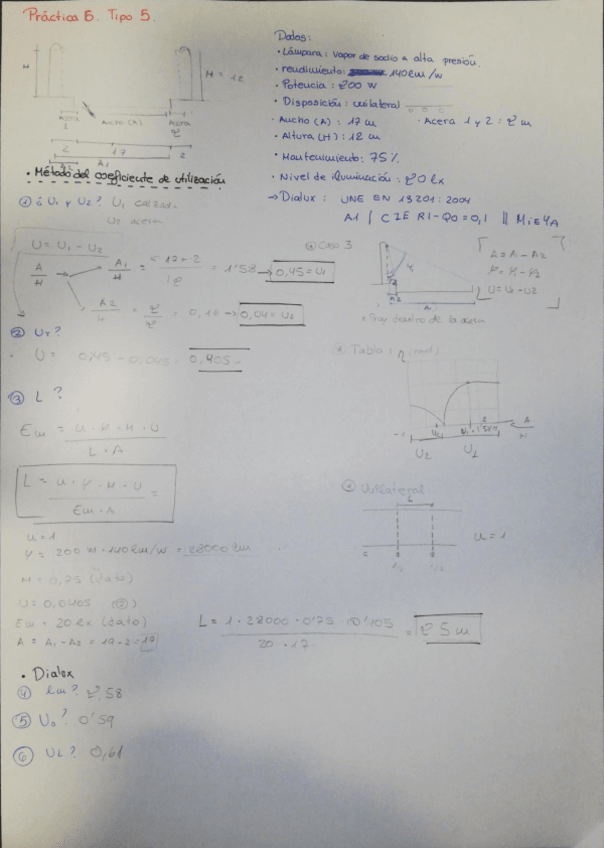 Práctica 6. Tipo 5.
Datos:
• Lámpara: Vapor de sodio a alta presión.
• rendimiento: 140 lm/w
• Potencia: 200 W
• Disposición: unilateral
• Ancho (A): 17 m
• Acera 1 y 2: 2 m
• Altura (H): 12 m
• Mantenimiento: 75%
• Nivel de iluminación: 20 lx
→ Dialux: UNE EN 13201:2004
A1 | CIE R1-Q0=0,1 || MiE4A
H
H = 12
Acera 1
Ancho (A)
Acera 2
2 17 2
A2 A1
• Método del coeficiente de utilización
① ¿ U1 y U2? U1 calzada
U2 acera
U = U1 - U2
A/H → A1/H = 17+2/12 = 1'58 → 0,45 = U1
A2/H = 2/12 = 0,16 → 0,04 = U2
Caso 3
A = A1 - A2
U = U1 - U2
A2 A1
dentro de la acera
② UT?
U = 0,45 - 0,045 = 0,405
Tabla: η
U2 U1
③ L?
Em = u · φ · M · U / L · A
L = u · φ · M · U / Em · A =
Unilateral
L
u = 1
1/2 1/2
u = 1
φ = 200 W · 140 lm/w = 28000 lm
M = 0,75 (dato)
U = 0,0405 (②)
Em = 20 lx (dato)
A = A1 - A2 = 19 - 2 = 17
L = 1 · 28000 · 0'75 · 0'405 / 20 · 17 = 25 m
• Dialux
④ lm? 2,58
⑤ Uo? 0'59
⑥ UL? 0,61